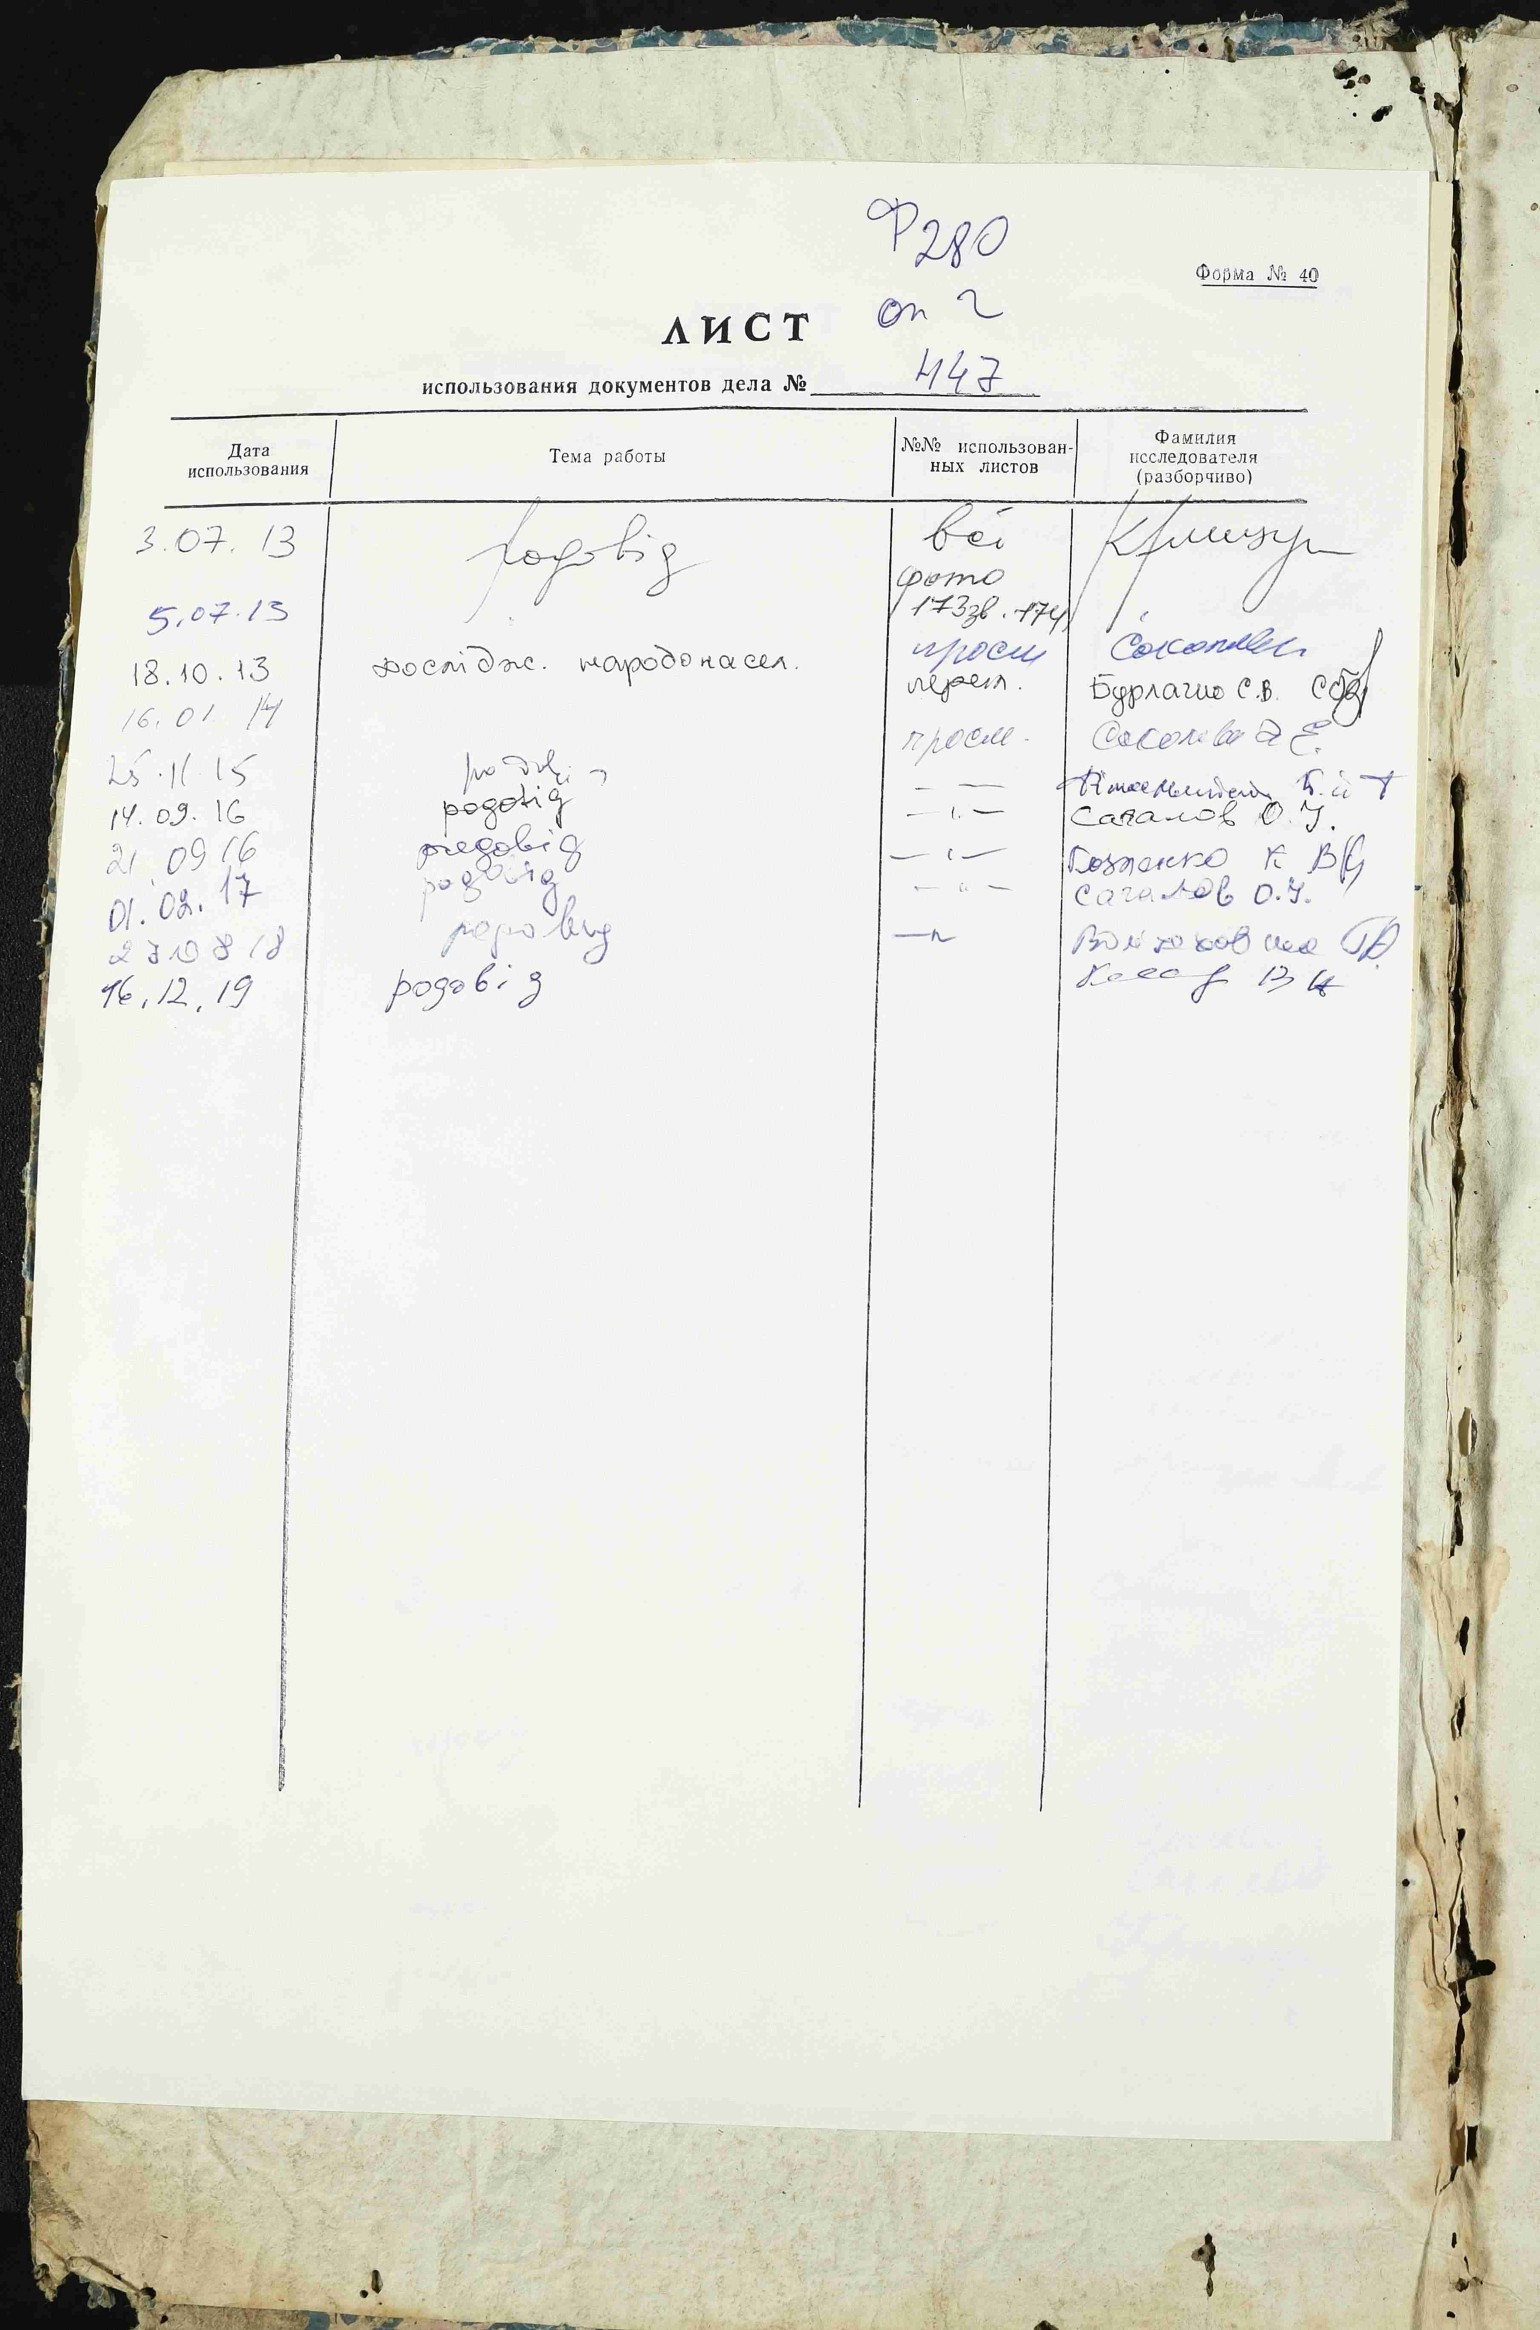 Ф 280
Форма № 40
оп 2
ЛИСТ
использования документов дела № 447
Дата использования Тема работы №№ использован-ных листов Фамилия исследователя (разборчиво)
3.07.13 родовід всі
фото
5.07.13 173зв.-174
просм
18.10.13 дослідж. народонасел. перегл. Бурлачио С.В.
16.01 14 просм. Соколова Е.
25.11 15
14.09.16 родовід —"— Сагалов О.У.
21 09 16 родовід —"— К В
01.02.17 родовід —"— Сагалов О.У.
27 08 18 —"
16.12.19 родовід